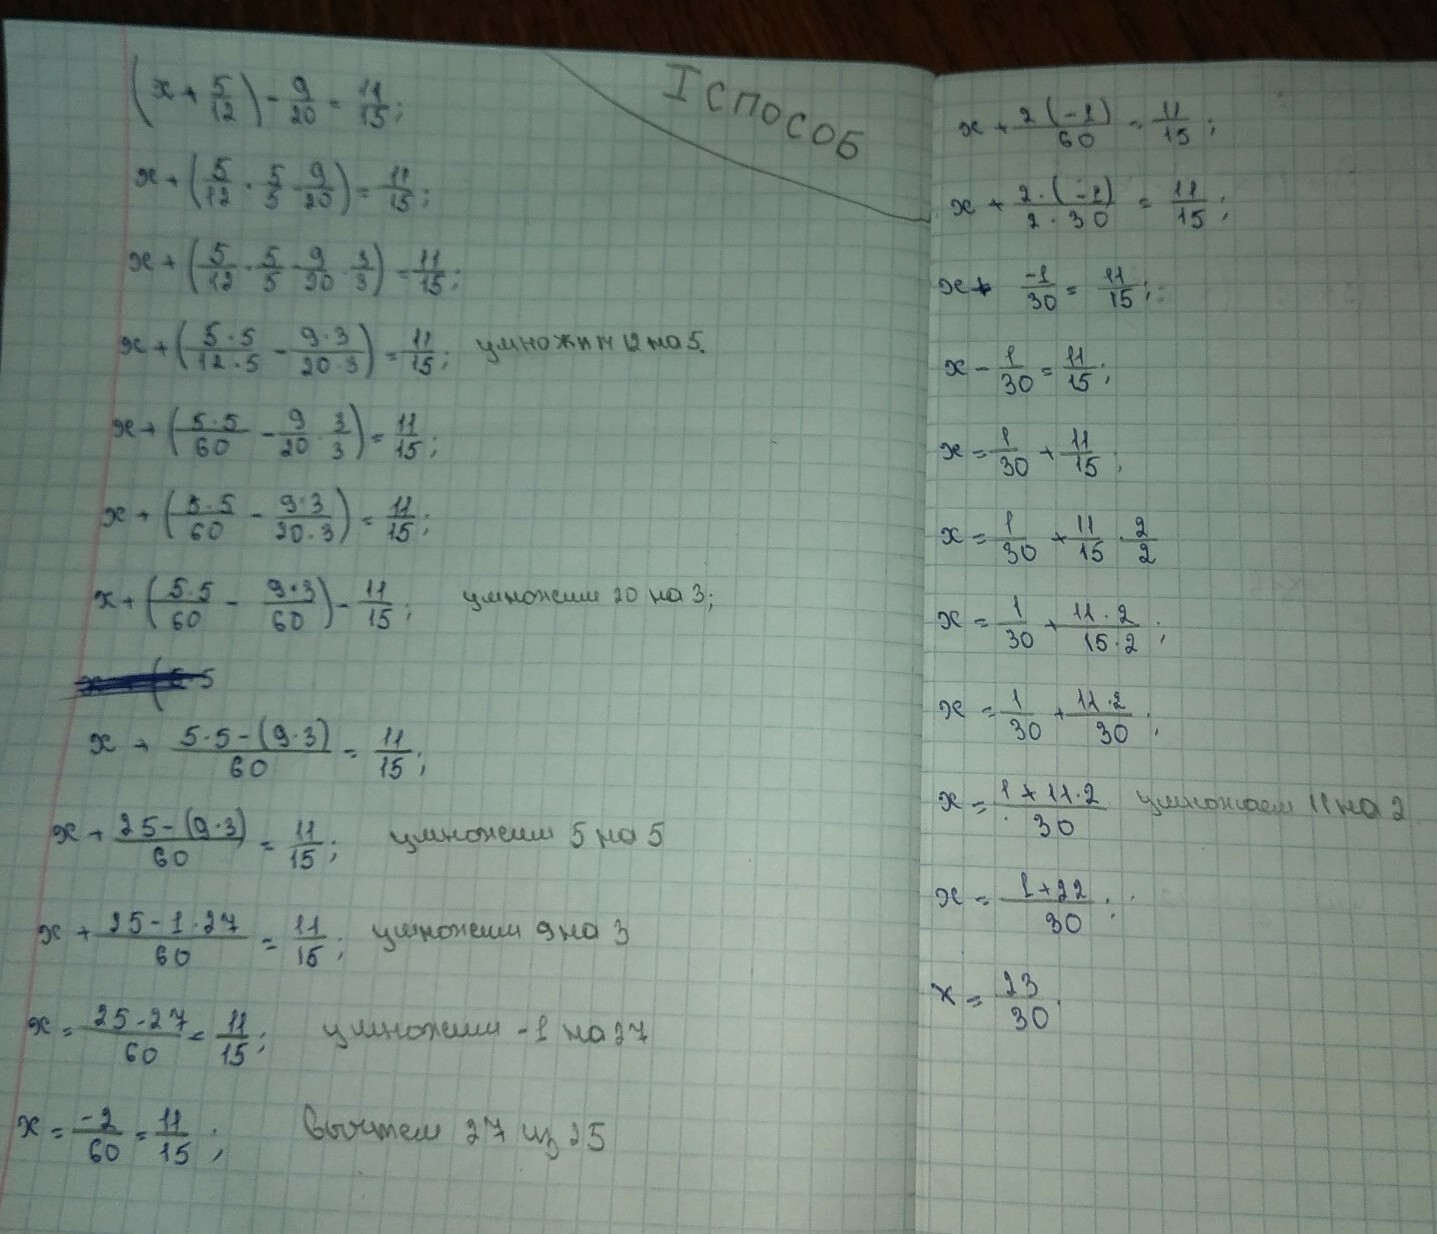 I способ
(x + 5/12) - 9/20 = 11/15;
x + (5/12 · 5/5 - 9/20) = 11/15;
x + (5/12 · 5/5 - 9/20 · 3/3) = 11/15;
x + (5·5/12·5 - 9·3/20·3) = 11/15; умножим 12 на 5.
x + (5·5/60 - 9/20 · 3/3) = 11/15;
x + (5·5/60 - 9·3/20·3) = 11/15;
x + (5·5/60 - 9·3/60) - 11/15; умножим 20 на 3;
x + 5·5-(9·3)/60 = 11/15;
x + 25-(9·3)/60 = 11/15; умножим 5 на 5
x + 25-1·27/60 = 11/15; умножим 9 на 3
x = 25-27/60 = 11/15; умножим -1 на 27
x = -2/60 = 11/15; Вычтем 27 из 25
x + 2(-1)/60 = 11/15;
x + 2·(-1)/2·30 = 11/15;
x + -1/30 = 11/15;
x - 1/30 = 11/15;
x = 1/30 + 11/15;
x = 1/30 + 11/15 · 2/2
x = 1/30 + 11·2/15·2;
x = 1/30 + 11·2/30;
x = 1+11·2/30 умножаем 11 на 2
x = 1+22/30;
x = 23/30.